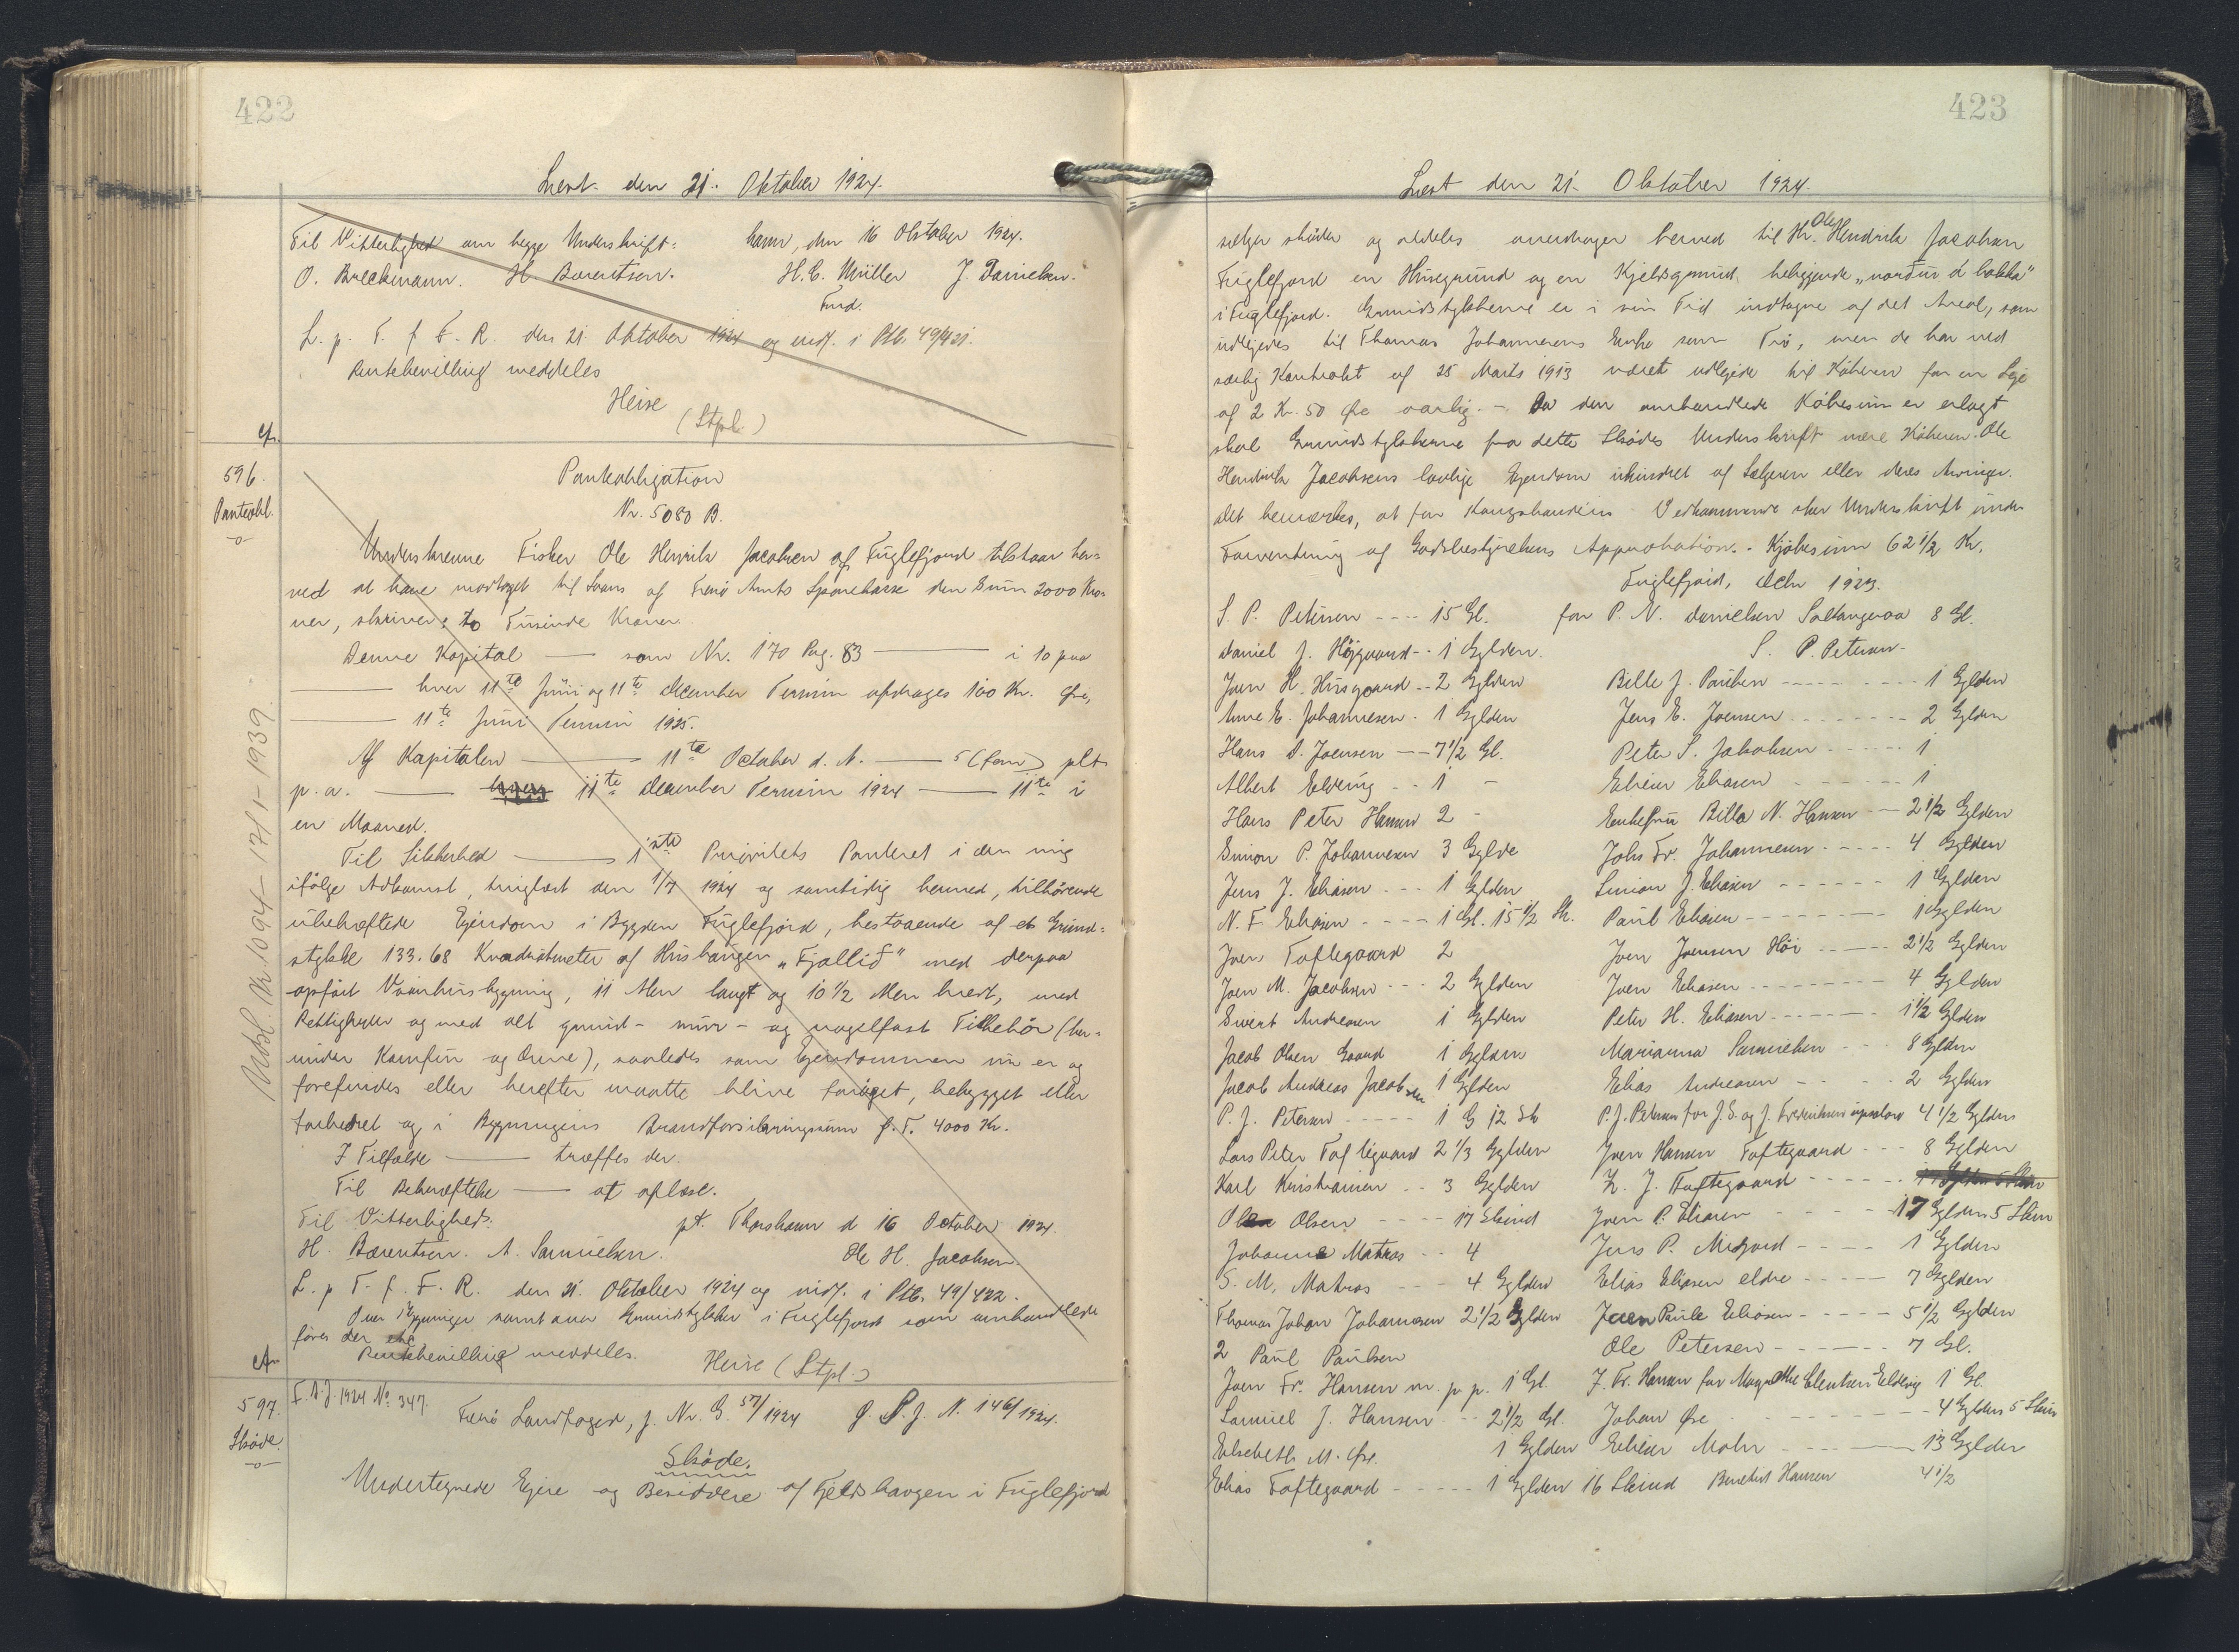 422
Læst den 21. Oktober 1924.
Til Vitterlighed om begge Underskrift: havn, den 16 Oktober 1924.
O. Breckmann. H. Barentsen. H. C. Müller J. Danielsen.
Fmd.
L. p. T. f F. R. den 21 Oktober 1924 og indf. i Ptb. 49/421.
Rentebevilling meddeles
Heise
(Stpl.)
cfr.
596.
Panteobl.
Panteobligation
Nr. 5080 B.
Underskrevne Fisker Ole Henrik Jacobsen af Fuglefjord tilstaar her=
ved at have modtaget til Laans af Færø Amts Sparekasse den Sum 2000 Kro-
ner, skriver: to Tusinde Kroner.
Denne Kapital —— som Nr. 170 Pag. 83 —— i 10 paa
—— hver 11te Juni og 11te December Termin afdrages 100 Kr. Øre,
—— 11te Juni Termin 1925.
Af Kapitalen —— 11te October d. A. —— 5 (fem) pCt
p. a. —— hver 11te December Termin 1924 —— 11te i
en Maaned.
Til Sikkerhed —— 1ste Prioritets Panteret i den mig
ifølge Adkomst, tinglæst den 1/7 1924 og samtidig hermed, tilhørende
ubehæftede Ejendom i Bygden Fuglefjord, bestaaende af et Grund=
stykke 133.68 Kvadratmeter af Husbaugen "Fjallið" med derpaa
opført Vaanhusbygning, 11 Alen langt og 10 1/2 Alen bredt, med
Rettigheder og med alt grund- mur- og nagelfast Tilbehør (her=
under Komfur og Ovne), saaledes som Ejendommen nu er og
forefindes eller herefter maatte blive forøget, bebygget eller
forbedret og i Bygningens Brandforsikringssum p. T. 4000 Kr.
I Tilfælde —— træffes der.
Til Bekræftelse —— at aflæse.
Til Vitterlighed: pt. Thorshavn d 16 October 1924.
H. Barentsen. A. Samuelsen. Ole H. Jacobsen.
L. p T. f. F. R. den 21. Oktober 1924 og indf. i Ptb. 49/422.
Over Bygninger samt over Grundstykker i Fuglefjord som omhandlede
føres der ikke
Rentebevilling meddeles. Heise (Stpl.)
cfr
Udsl. Nr 1094 - 17/1 - 1939.
597.
Skøde.
F. A. J. 1924 No. 347.
Færø Landfoged, j. Nr. G. 57/1924 J. N. 146/1924.
Skøde.
Undertegnede Ejere og Besiddere af Fjeldshaugen i Fuglefjord
423
Læst den 21. Oktober 1924.
sælger skøder og aldeles overdrager herved til Hr. Ole Hendrik Jacobsen
Fuglefjord en Husegrund og en Kjeldsgrund, beliggende "norður á bakka"
i Fuglefjord. Grundstykkerne er i sin Tid indtagne af det Areal, som
udlejedes til Thomas Johannesens Enke som Trø, men de har ved
særlig Kontrakt af 25 Marts 1913 været udlejede til Køberen for en Leje
af 2 Kr. 50 Øre aarlig. - Da den omhandlede Købesum er erlagt
skal Grundstykkerne fra dette Skødes Underskrift være Køberen Ole
Hendrik Jacobsens lovlige Ejendom uhindret af Sælgeren eller deres Arvinger.
Det bemærkes, at for Kongshandlens Vedkommende sker Underskrift under
Forventning af Godsbestyrelsens Approbation. - Kjøbesum 62 1/2 Kr.
Fuglefjord, Dcbr 1923.
S. P. Petersen ---- 15 Gl. for P. N. Danielsen Saltangeraa 8 Gl.
Daniel J. Højgaard -- 1 Gylden. S. P. Petersen
Joen H. Husgaard -- 2 Gylden Bille J. Poulsen ---- 1 Gylden
Anne E. Johannesen - 1 Gylden Jens E. Joensen ---- 2 Gylden
Hans D. Joensen -- 7 1/2 Gl. Peter S. Jakobsen ---- 1
Albert Elving -- 1 - Elieser Eliasen ---- 1
Hans Peter Hansen 2 - Enkefru Billa N. Hansen -- 2 1/2 Gylden
Simon P. Johannesen 3 Gylde Johs Fr. Johannesen ---- 4 Gylden
Jens J. Eliasen --- 1 Gylden Simon J. Eliasen ---- 1 Gylden
N. F. Eliasen ---- 1 Gl. 15 1/2 Sk. Paul Eliasen ---- 1 Gylden
Joen Toftegaard 2 Joen Joensen Hói ---- 2 1/2 Gylden
Joen M. Jacobsen --- 2 Gylden Joen Eliasen ---- 4 Gylden
Sivert Andreasen 1 Gylden Peter H. Eliasen ---- 1 1/2 Gylden
Jacob Olsen Gaard 1 Gylden Marianna Samuelsen --- 8 Gylden
Jacob Andreas Jacobsen 1 Gylden Elias Andreasen ---- 2 Gylden
P. J. Petersen ---- 1 G 12 Sk P. J. Petersen for J. S. og J. Frederiksens 4 1/2 Gylden
Lars Peter Toftegaard 2 1/3 Gylden Joen Hansen Toftegaard --- 8 Gylden
Karl Kristiansen -- 3 Gylden Z. J. Toftegaard ----
Olsen ---- 17 Skind Joen P. Eliasen ---- 17 Gylden 5 Skin
Johanne Matras -- 4 Jens P. Midjord ---- 1 Gylden
S. M. Matras --- 4 Gylden Elias Eliasen eldre ---- 7 Gylden
Thomas Johan Johannesen 2 1/2 Gylden Joen Paule Eliasen ---- 5 1/2 Gylden
2 Paul Poulsen Ole Petersen ---- 7 Gl.
Joen Fr. Hansen m. p p. 1 Gl. J. Fr. Hansen for Eldevig 1 Gl.
Samuel J. Hansen --- 2 1/2 Gl. Johan Øre ---- 4 Gylden 5 Skin
Elsebeth M. Øre. 1 Gylden Elieser Mohr ---- 13 Gylden
Elias Toftegaard ---- 1 Gylden 16 Skind Benedikt Hansen 4 1/2